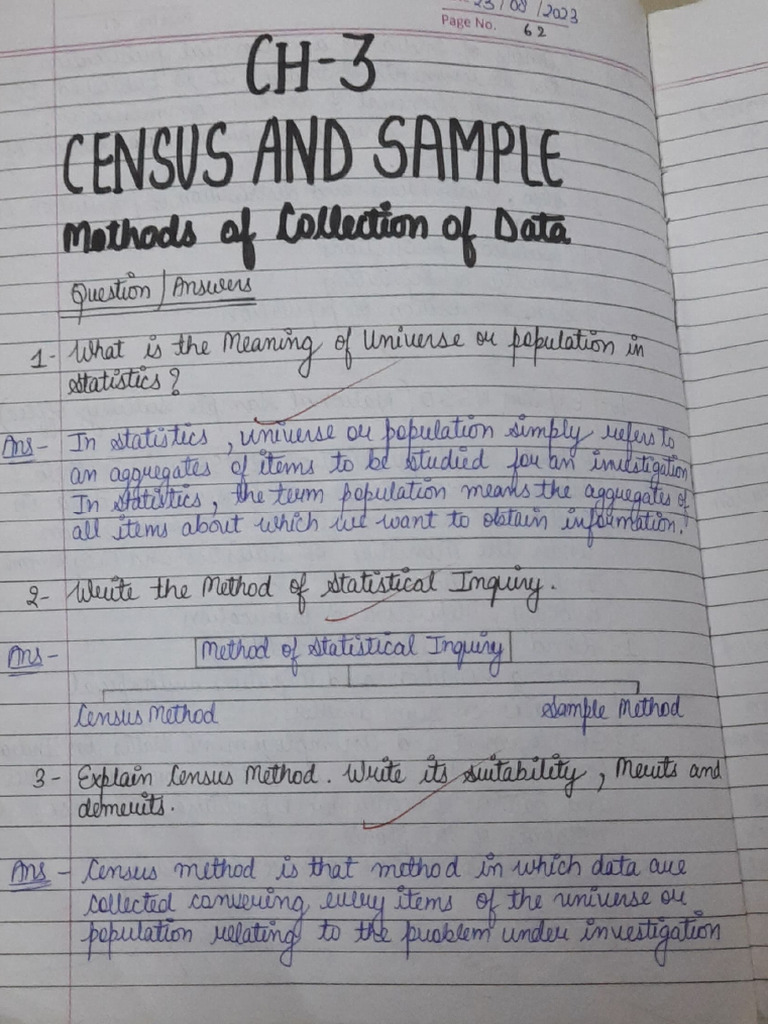 23/08/2023
Page No. 62
CH-3
CENSUS AND SAMPLE
Methods of Collection of Data
Question / Answers
1- What is the Meaning of Universe or population in
statistics?
Ans- In statistics, universe or population simply refers to
an aggregates of items to be studied for an investigation
In statistics, the term population means the aggregates of
all items about which we want to obtain information.
2- Write the Method of Statistical Inquiry.
Ans-
Method of Statistical Inquiry
Census Method Sample Method
3- Explain Census Method. Write its suitability, Merits and
demerits.
Ans- Census method is that method in which data are
collected convering every items of the universe or
population relating to the problem under investigation